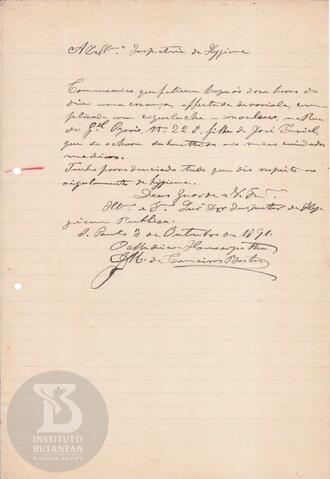 Inspectoria de Hygiene
Communico que falleceu hoje ás doze horas do
dia uma creança affectada de variola, com-
plicada com coqueluche e sarampo, na Rua
de Gal Ozorio, Nº 22 E, filha de José
que se achava submettida aos meus cuidados
medicos.
Tenho providenciado tudo que diz respeito ao
regulamento de hygiene.
Deus Guarde a V. Exa.
Illmo e Exmo Snr Dor Inspector de Hy-
giene Publica.
S. Paulo 3 de Outubro de 1891.
O Medico Homœopatha
M. de
INSTITUTO
BUTANTAN
A serviço da vida